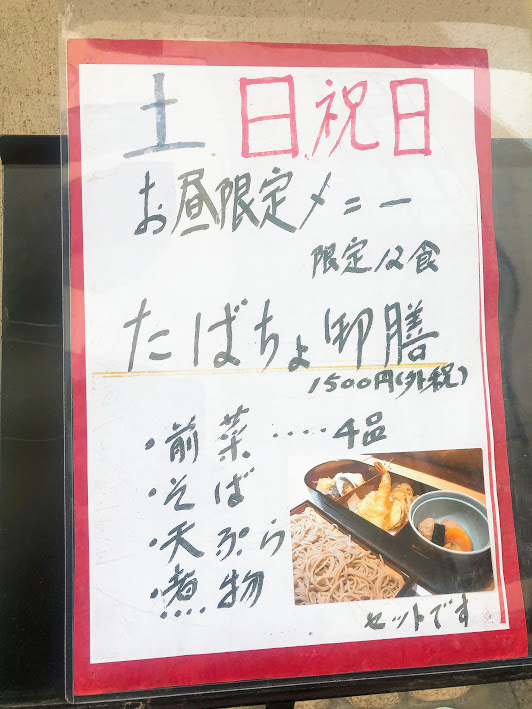 土.日.祝日
お昼限定メニー
限定12食
たばちょ御膳
1500円(外税)
・前菜‥‥4品
・そば
・天ぷら
・煮物
セットです